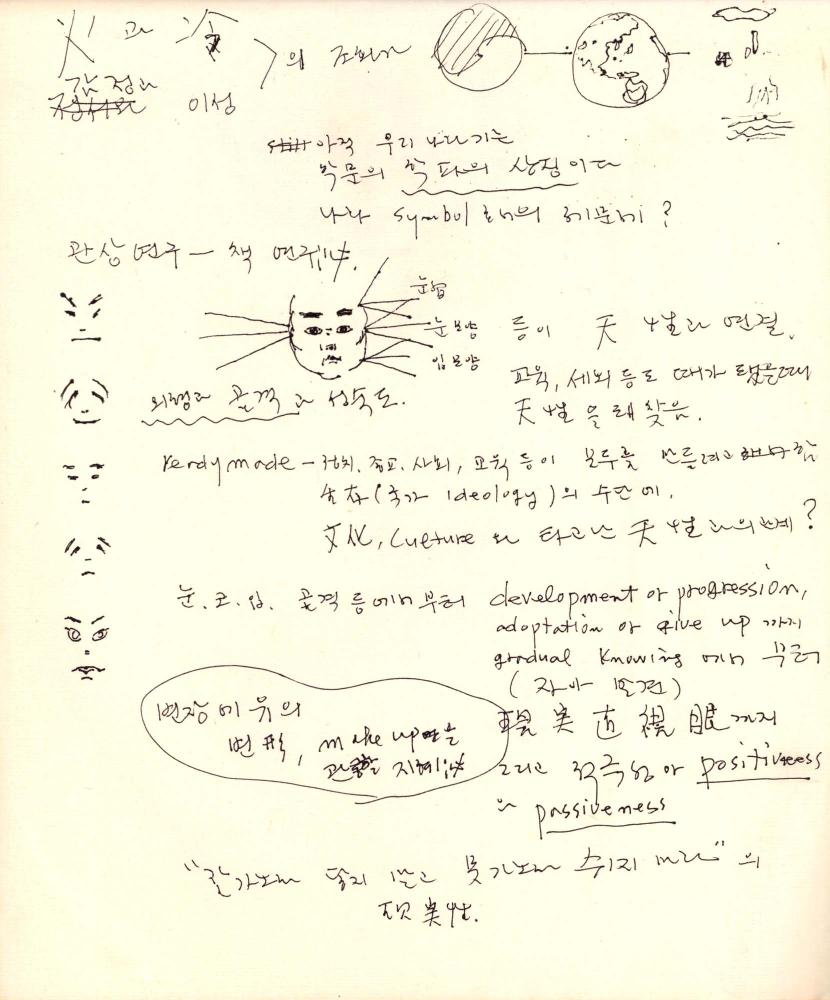 火 과 冷 의 조화
감정과 이성
아직 우리 나라 기는
학문의 학파의 상징이다
나라 symbol 로서의 레몬네?
관상 연구 — 책 연구
눈썹
눈 모양
입 모양
등이 天性과 연결.
외형과 골격과 성숙도.
교육, 세뇌 등도 때가
天性을 찾음.
ready made — 정치. 종교. 사회, 교육 등이 모두를 만들려고 함
生存 (국가 ideology)의 수단에.
文化, Culture 와 타고난 天性과의 관계?
눈. 코. 입. 골격 등에서 부터 development or progression,
adoptation or give up 까지
gradual knowing 에서 부터
(자아 발견)
변장에 유의
변形, make up
現実直視眼 까지
그리고 적극성 아 positiveness
와 passiveness
"잘가노라 닫지 말고 못가노라 쉬지 마라" 의
現実性.